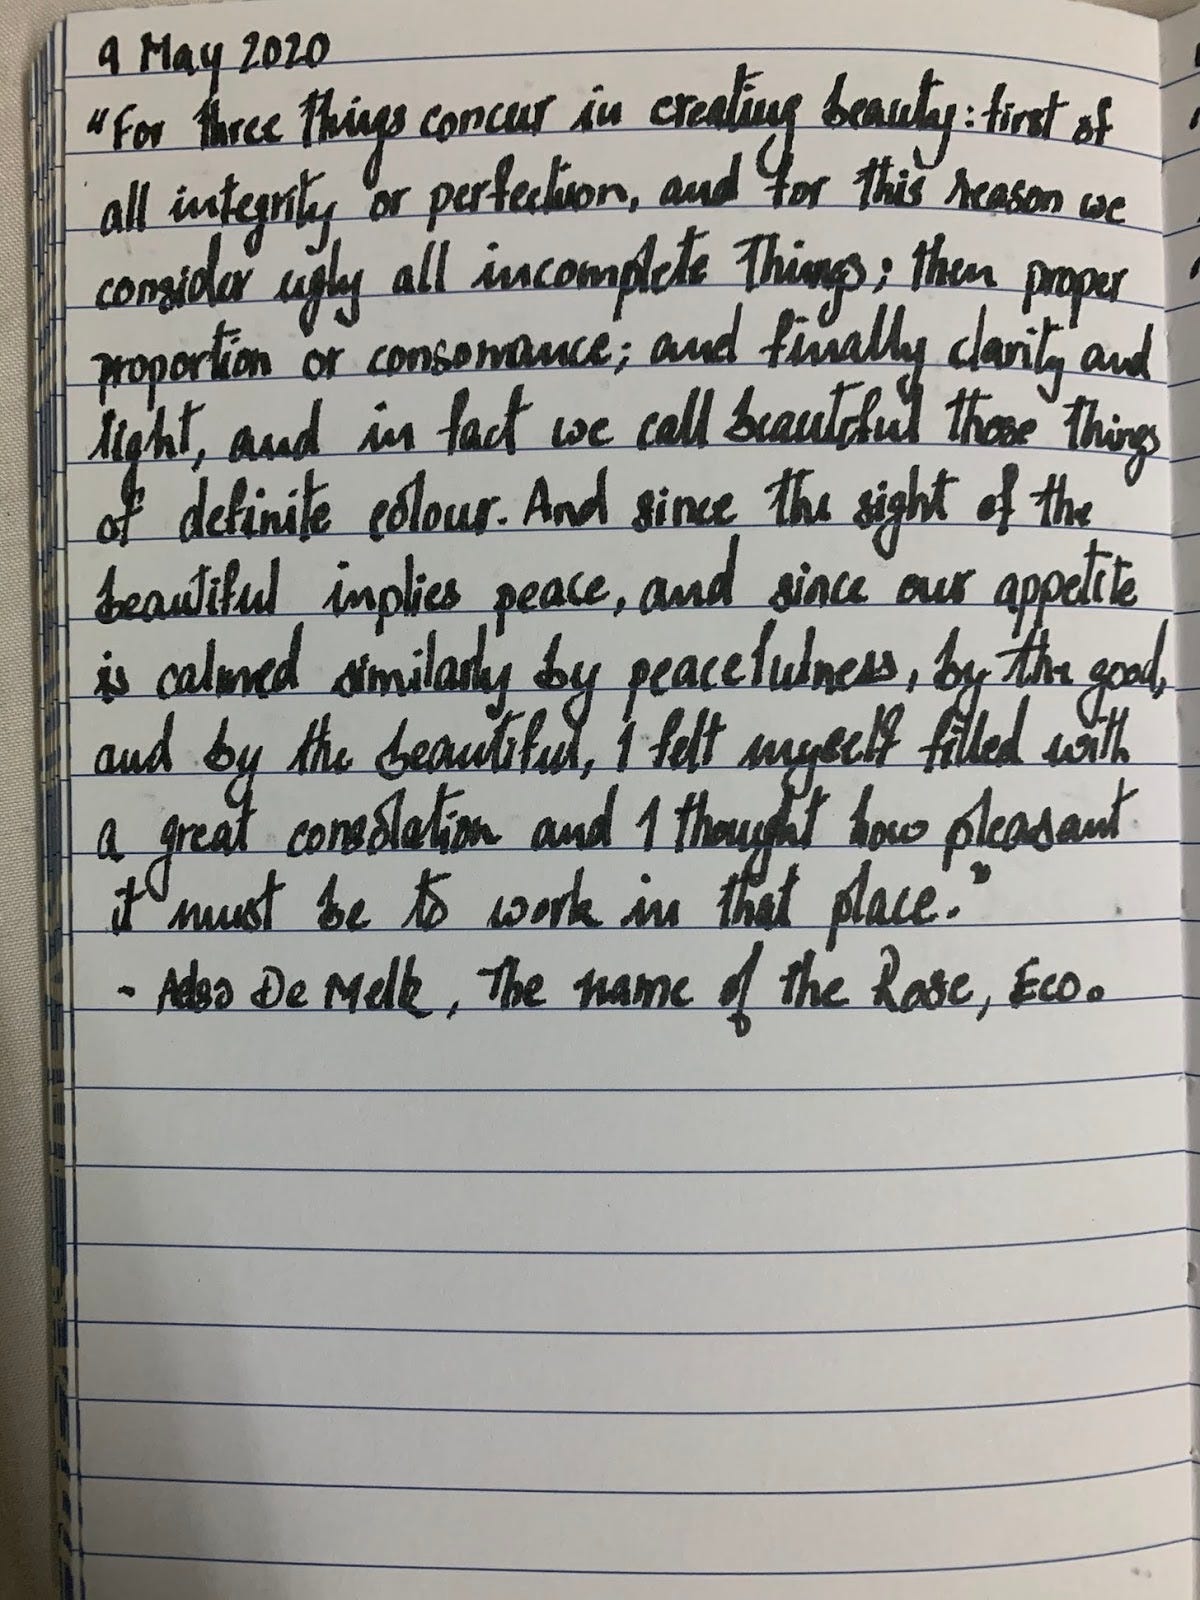 9 May 2020
"For three things concur in creating beauty: first of
all integrity or perfection, and for this reason we
consider ugly all incomplete things; then proper
proportion or consonance; and finally clarity and
light, and in fact we call beautiful those things
of definite colour. And since the sight of the
beautiful implies peace, and since our appetite
is calmed similarly by peacefulness, by the good,
and by the beautiful, I felt myself filled with
a great consolation and I thought how pleasant
it must be to work in that place."
- Adso De Melk, The name of the Rose, Eco.